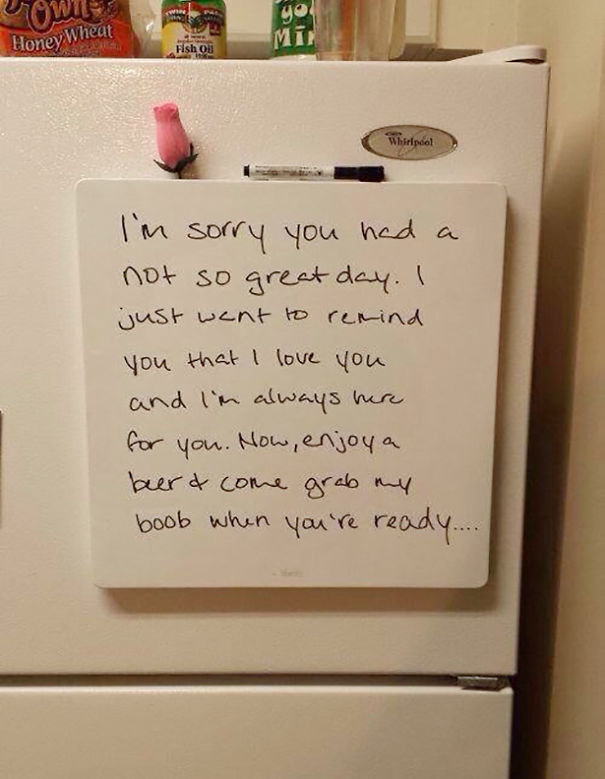 Own
Honey Wheat
TWIN
Fish Oil
Min
Whirlpool
I'm sorry you had a
not so great day. I
just want to remind
you that I love you
and I'm always here
for you. Now, enjoy a
beer & come grab my
boob when you're ready....